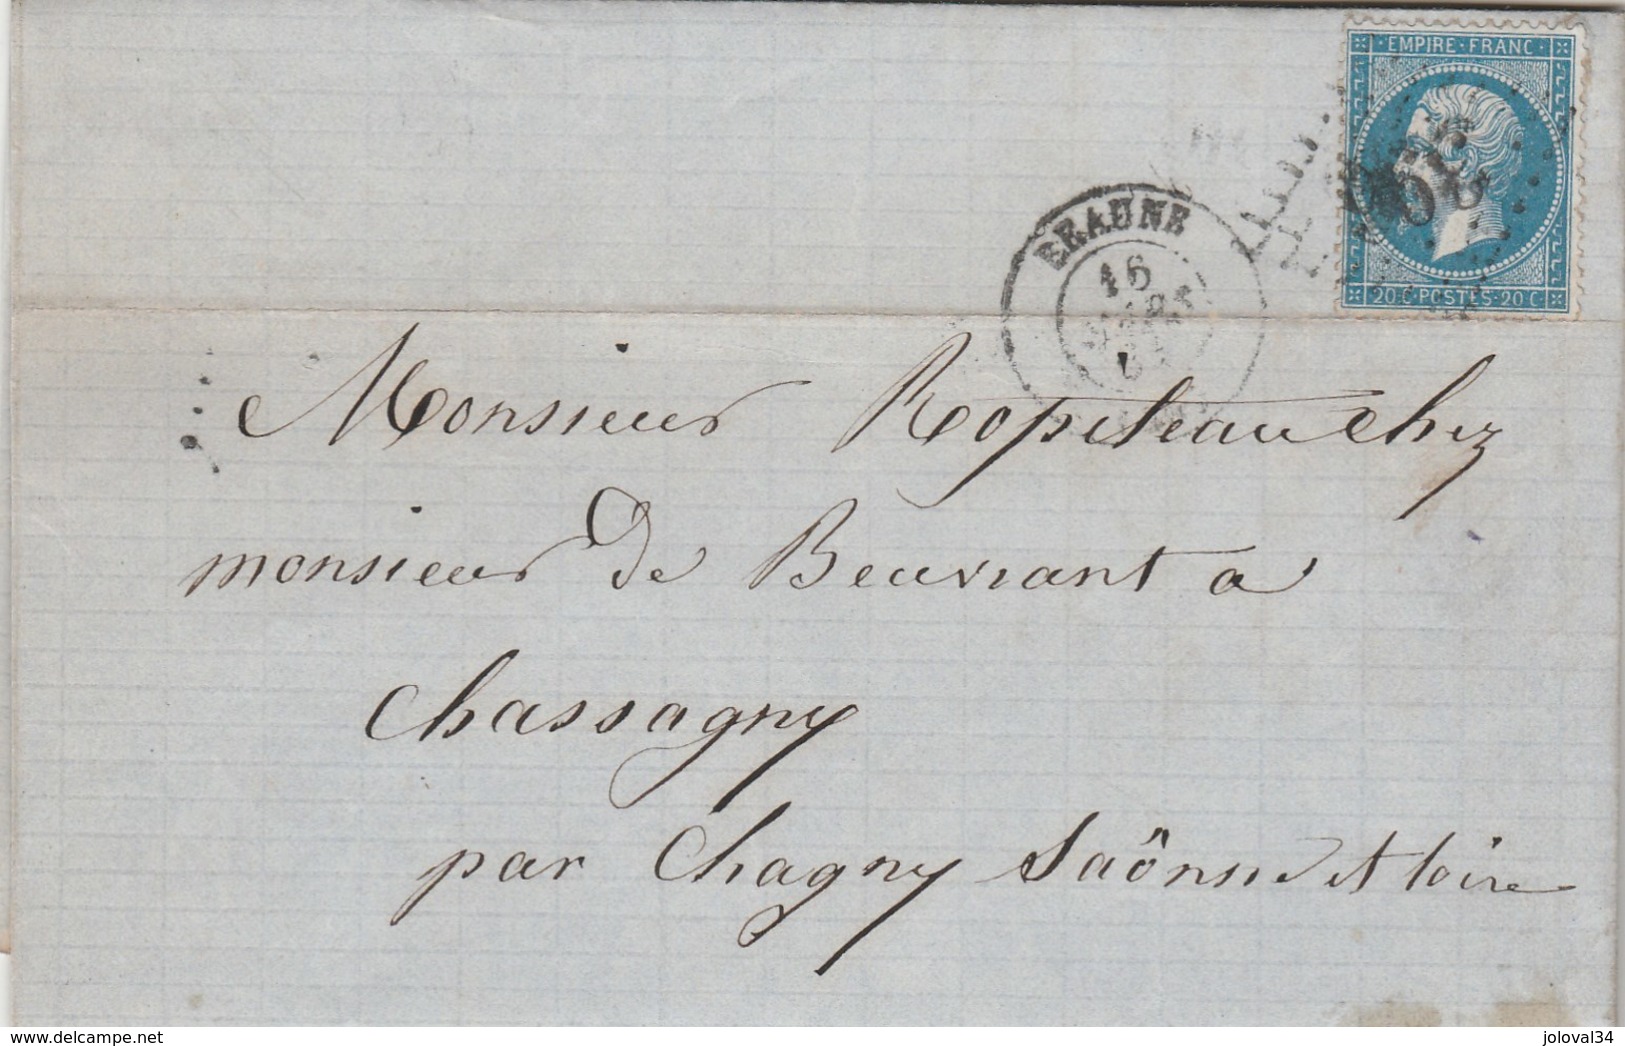 EMPIRE · FRANC
20 C · POSTES · 20 C
BEAUNE
16
Monsieur Ropiteau chez
monsieur de Beuvrant a
Chassagny
par Chagny Saône et loire
www.delcampe.net
joloval34